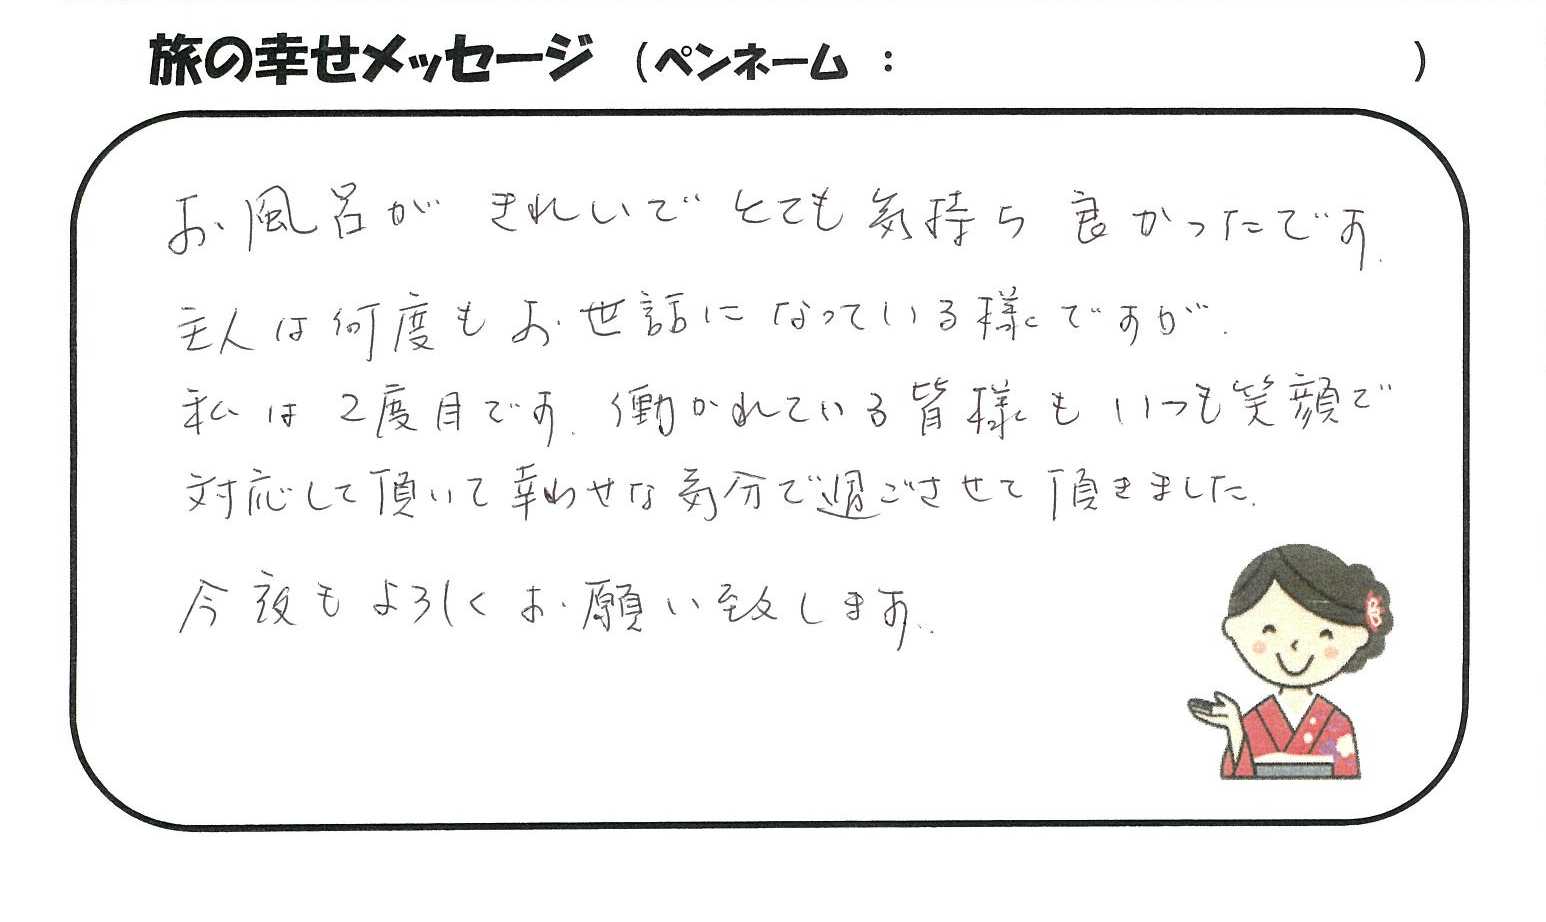 旅の幸せメッセージ （ペンネーム ： ）
お風呂が きれいで とても 気持ち 良かったです.
主人は何度もお世話になっている様ですが.
私は2度目です. 働かれている皆様もいつも笑顔で
対応して頂いて幸わせな気分で過ごさせて頂きました.
今夜もよろしくお願い致します..